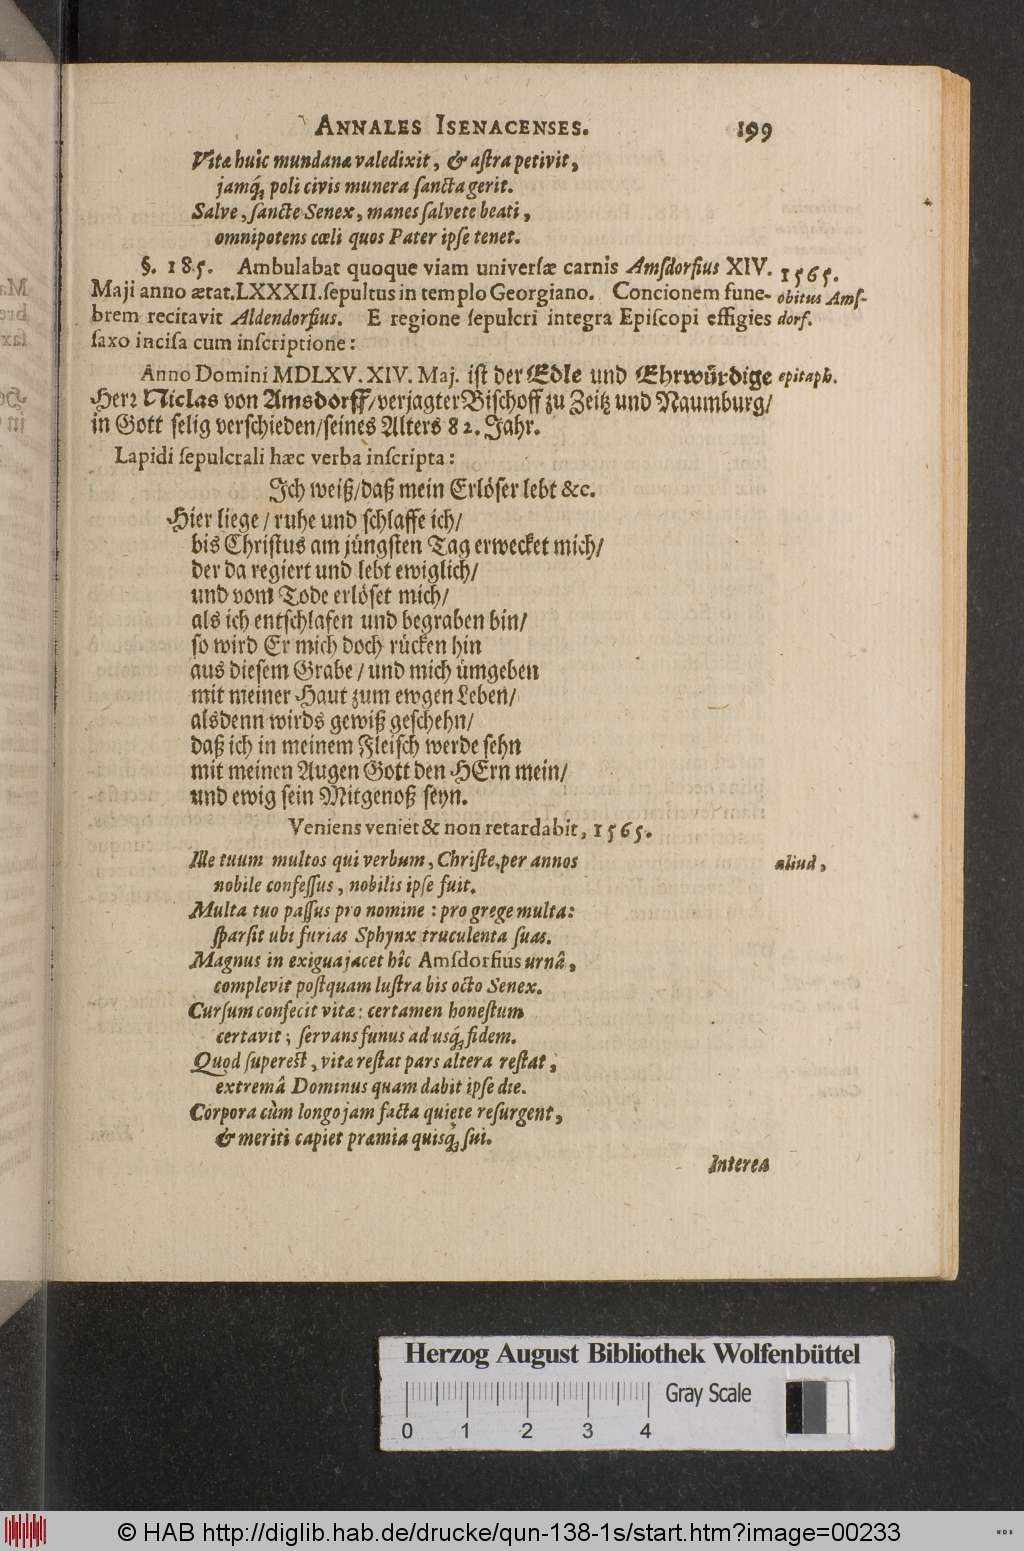 ANNALES ISENACENSES. 199
Vitæ huic mundanæ valedixit, & aſtra petivit,
jamq́; poli civis munera ſancta gerit.
Salve, ſancte Senex, manes ſalvete beati,
omnipotens cœli quos Pater ipſe tenet.
§. 185. Ambulabat quoque viam univerſæ carnis Amſdorfius XIV. 1565.
Maji anno ætat. LXXXII. ſepultus in templo Georgiano. Concionem fune- obitus Amſ-
brem recitavit Aldendorfius. E regione ſepulcri integra Epiſcopi effigies dorf.
ſaxo inciſa cum inſcriptione:
Anno Domini MDLXV. XIV. Maj. iſt der Edle und Ehrwürdige epitaph.
Herr Niclas von Amsdorff/ verjagter Biſchoff zu Zeitz und Naumburg/
in Gott ſelig verſchieden/ ſeines Alters 82. Jahr.
Lapidi ſepulcrali hæc verba inſcripta:
Ich weiß/ daß mein Erlöſer lebt &c.
Hier liege / ruhe und ſchlaffe ich/
bis Chriſtus am jüngſten Tag erwecket mich/
der da regiert und lebt ewiglich/
und vom Tode erlöſet mich/
als ich entſchlafen und begraben bin/
ſo wird Er mich doch rücken hin
aus dieſem Grabe / und mich ümgeben
mit meiner Haut zum ewgen Leben/
alsdenn wirds gewiß geſchehn/
daß ich in meinem Fleiſch werde ſehn
mit meinen Augen Gott den HErn mein/
und ewig ſein Mitgenoß ſeyn.
Veniens veniet & non retardabit, 1565.
Ille tuum multos qui verbum, Chriſte, per annos aliud,
nobile confeſſus, nobilis ipſe fuit.
Multa tuo paſſus pro nomine: pro grege multa:
ſparſit ubi furias Sphynx truculenta ſuas.
Magnus in exigua jacet hîc Amſdorfius urnâ,
complevit poſtquam luſtra bis octo Senex.
Curſum confecit vitæ: certamen honeſtum
certavit; ſervans funus ad usq́; fidem.
Quod ſupereſt, vitæ reſtat pars altera reſtat,
extremâ Dominus quam dabit ipſe die.
Corpora cùm longo jam facta quiete reſurgent,
& meriti capiet præmia quisq́; ſui.
Interea
Herzog August Bibliothek Wolfenbüttel
Gray Scale
0 1 2 3 4
© HAB http://diglib.hab.de/drucke/qun-138-1s/start.htm?image=00233